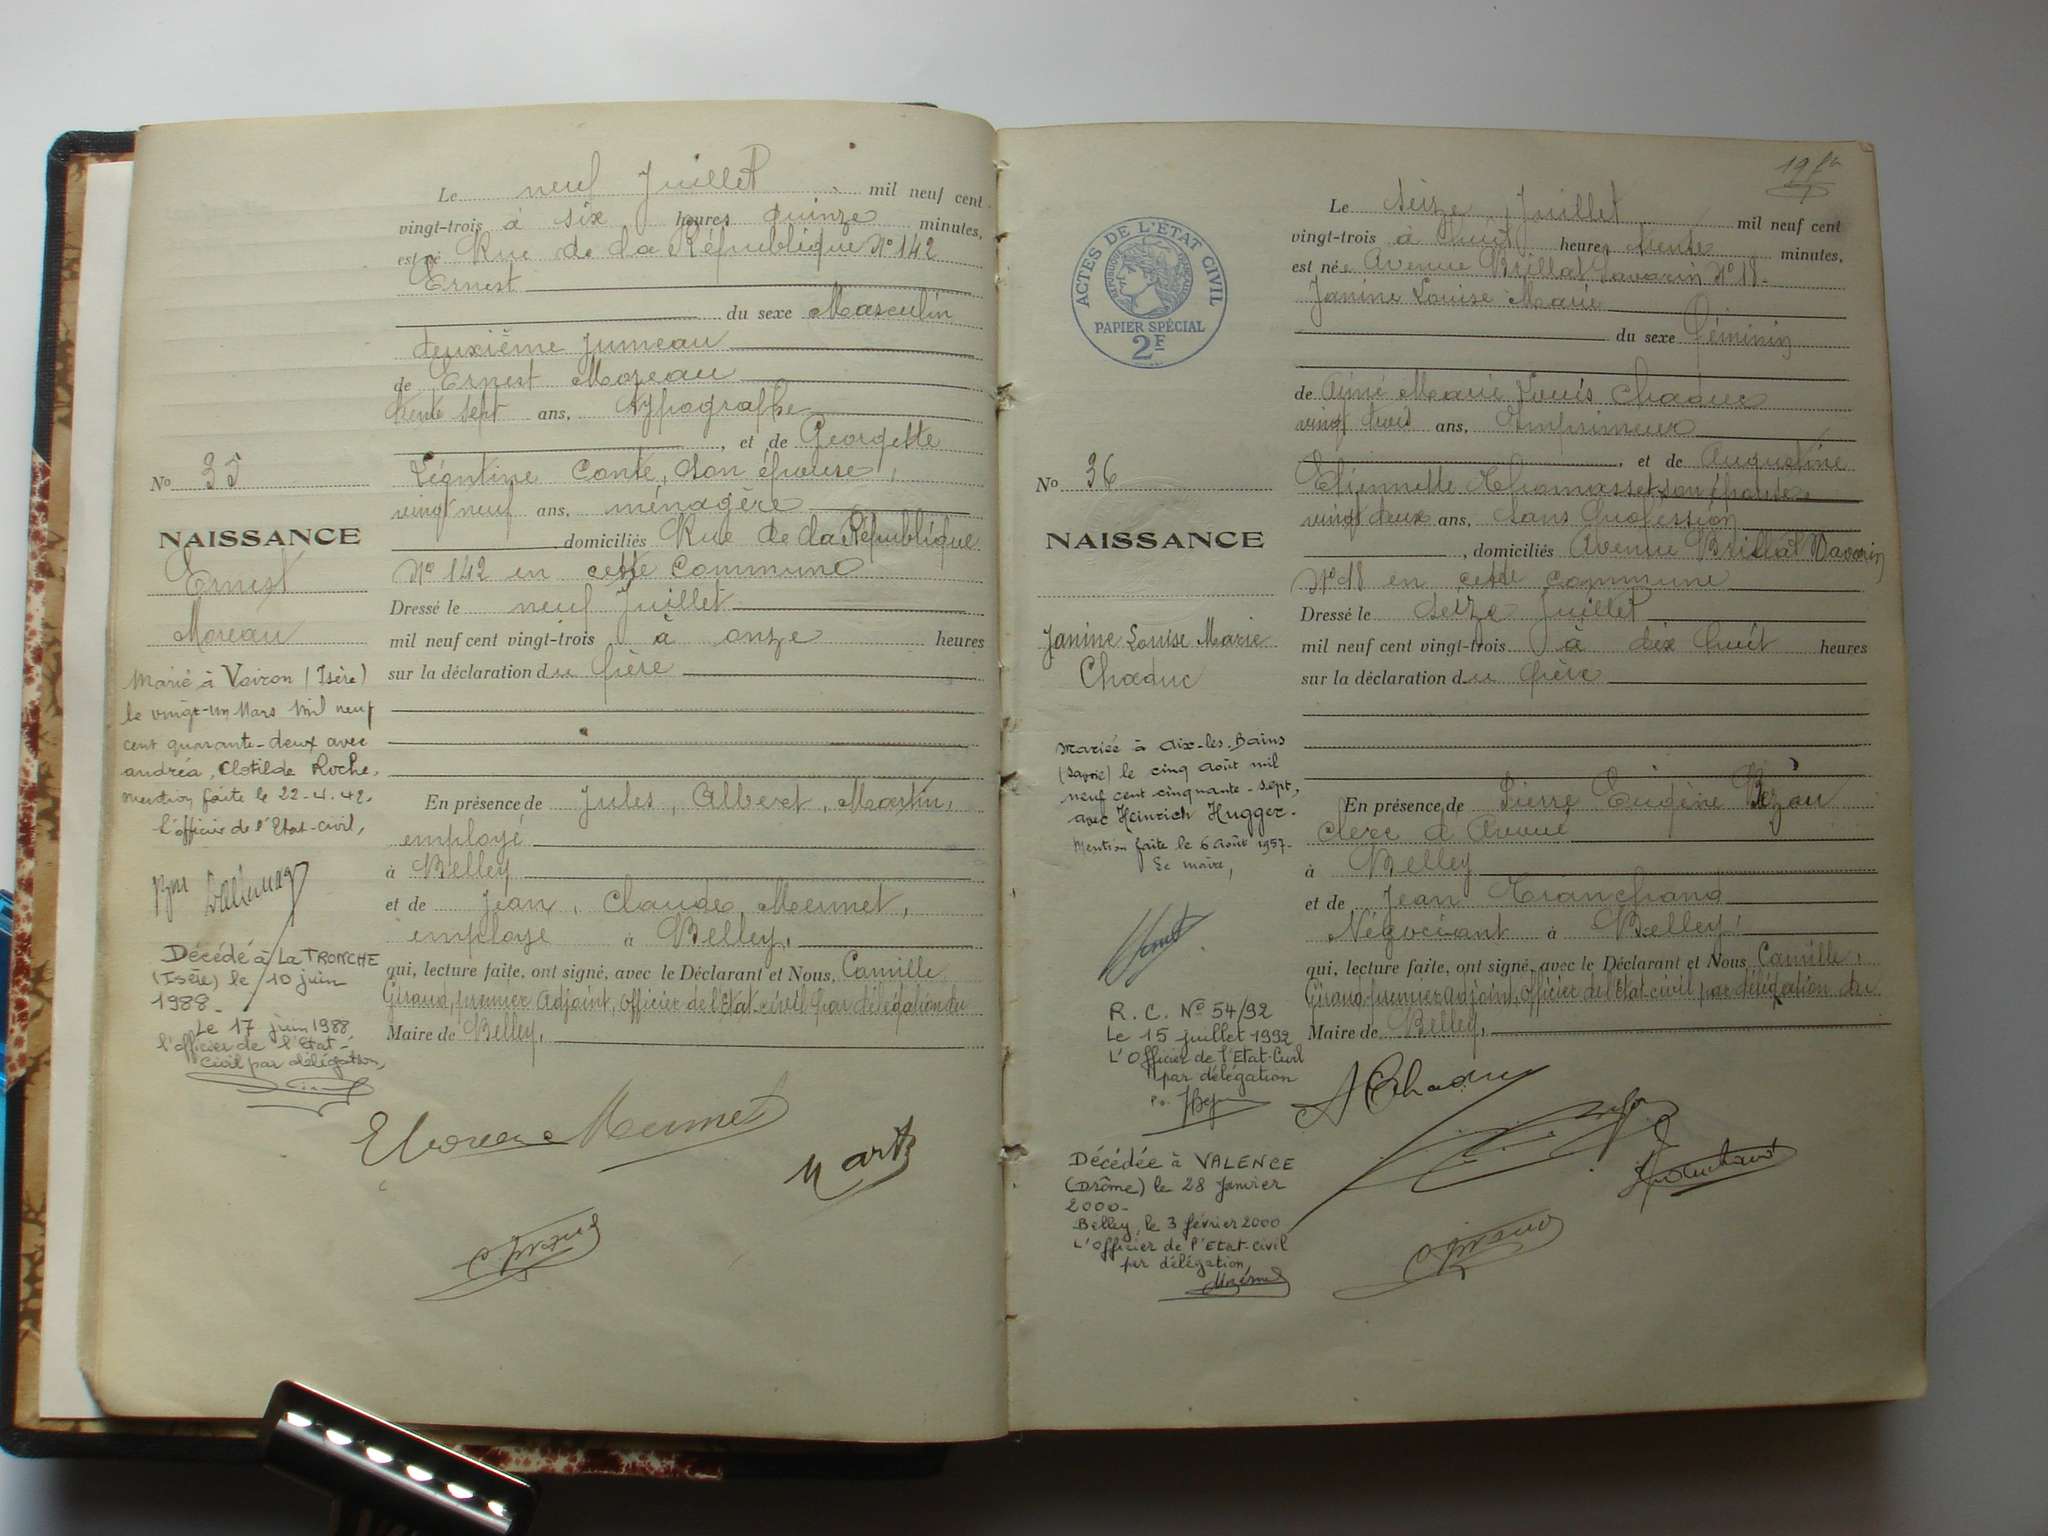 Le neuf Juillet mil neuf cent
vingt-trois à six heures quinze minutes,
est né Rue de la République N° 142
Ernest
du sexe Masculin
deuxième jumeau
de Ernest Moreau
trente sept ans, typographe
, et de Georgette
Léontine Conte, son épouse,
vingt neuf ans, ménagère
domiciliés Rue de la République
N° 142 en cette Commune
Dressé le neuf Juillet
mil neuf cent vingt-trois à onze heures
sur la déclaration du père
En présence de Jules, Albert, Martin,
employé
à Belley
et de Jean, Claude, Mermet,
employé à Belley,
qui, lecture faite, ont signé, avec le Déclarant et Nous, Camille
Giraud, premier Adjoint, Officier de l'Etat-civil par délégation du
Maire de Belley,
No 35
NAISSANCE
Ernest
Moreau
Marié à Voiron (Isère)
le vingt-un Mars mil neuf
cent quarante-deux avec
andréa, Clotilde Roche.
mention faite le 22-4-42.
l'officier de l'Etat-civil,
Décédé à LA TRONCHE
(Isère) le 10 juin
1988-
Le 17 juin 1988
l'officier de l'Etat-
Civil par délégation,
EMoreau Mermet
Marti
C Giraud
19
ACTES DE L'ÉTAT CIVIL
RÉPUBLIQUE FRANÇAISE
PAPIER SPÉCIAL
2F
Le seize Juillet mil neuf cent
vingt-trois à huit heures trente minutes,
est née Avenue Brillat Savarin N° 18-
Janine Louise Marie
du sexe féminin
de Aimé Marie Louis Chaduc
vingt trois ans, Imprimeur
, et de Augustine
Etiennette Thomasset, son épouse,
vingt deux ans, sans profession
, domiciliés Avenue Brillat Savarin
N° 18 en cette commune
Dressé le seize Juillet
mil neuf cent vingt-trois à dix huit heures
sur la déclaration du père
En présence de Pierre Eugène
Clerc d'Avoué
à Belley
et de Jean Tranchand
Négociant à Belley,
qui, lecture faite, ont signé, avec le Déclarant et Nous Camille
Giraud premier adjoint, Officier de l'Etat civil par délégation du
Maire de Belley,
No 36
NAISSANCE
Janine Louise Marie
Chaduc
Mariée à Aix-les-Bains
(Savoie) le cinq août mil
neuf cent cinquante-sept,
avec Heinrich Hugger.
Mention faite le 6 août 1957-
Le maire,
R. C. N° 54/92
Le 15 juillet 1992
L'Officier de l'Etat-Civil
par délégation
Décédée à VALENCE
(Drôme) le 28 Janvier
2000-
Belley, le 3 février 2000
L'Officier de l'Etat-Civil
par délégation,
A Chaduc
C Giraud